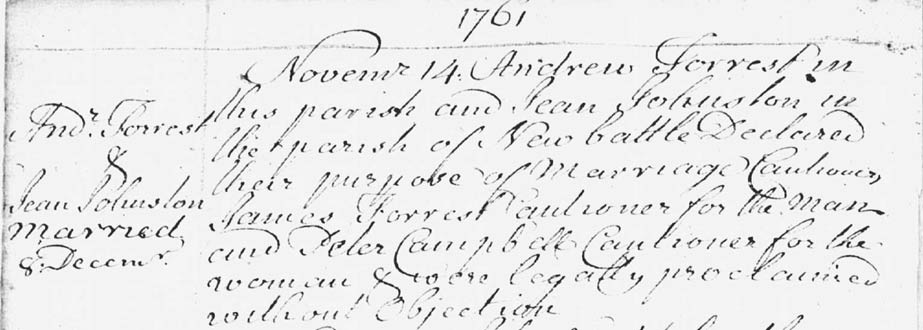 1761
Andr. Forrest
&
Jean Johnston
Married
8 Decemr.
Novemr 14. Andrew Forrest in
this parish and Jean Johnston in
the parish of Newbattle Declared
their purpose of Marriage Cautioners
James Forrest Cautioner for the Man
and Peter Campbell Cautioner for the
woman & were legally proclaimed
without Objection